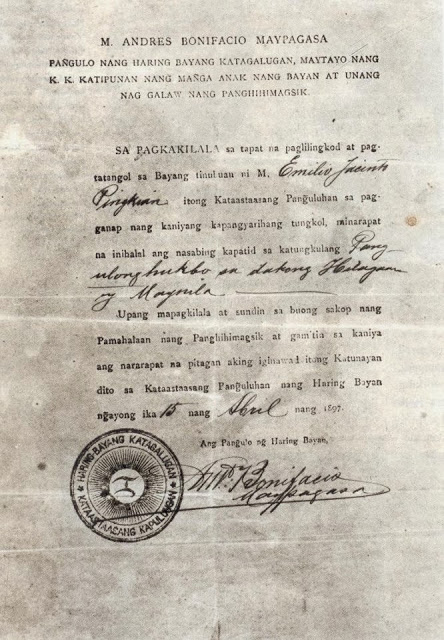 M. ANDRES BONIFACIO MAYPAGASA
PANGULO NANG HARING BAYANG KATAGALUGAN, MAYTAYO NANG
K. K. KATIPUNAN NANG MANGA ANAK NANG BAYAN AT UNANG
NAG GALAW NANG PANGHIHIMAGSIK.
SA PAGKAKILALA sa tapat na paglilingkod at pag-
tatangol sa Bayang tinubuan ni M. Emilio Jacinto
Pingkian itong Kataastaasang Panguluhan sa pag-
ganap nang kaniyang kapangyarihang tungkol, minarapat
na inihalal ang nasabing kapatid sa katungkulang Pang-
ulong hukbo sa dakong Hilagaan
ng Maynila
Upang mapagkilala at sundin sa buong sakop nang
Pamahalaan nang Panghihimagsik at gamitin sa kaniya
ang nararapat na pitagan aking iginawad itong Katunayan
dito sa Kataastaasang Panguluhan nang Haring Bayan
ngayong ika 15 nang Abril nang 1897.
Ang Pangulo ng Haring Bayan,
And. Bonifacio
Maypagasa
HARING-BAYANG KATAGALUGAN
KATAASTAASANG KAPULUNGAN